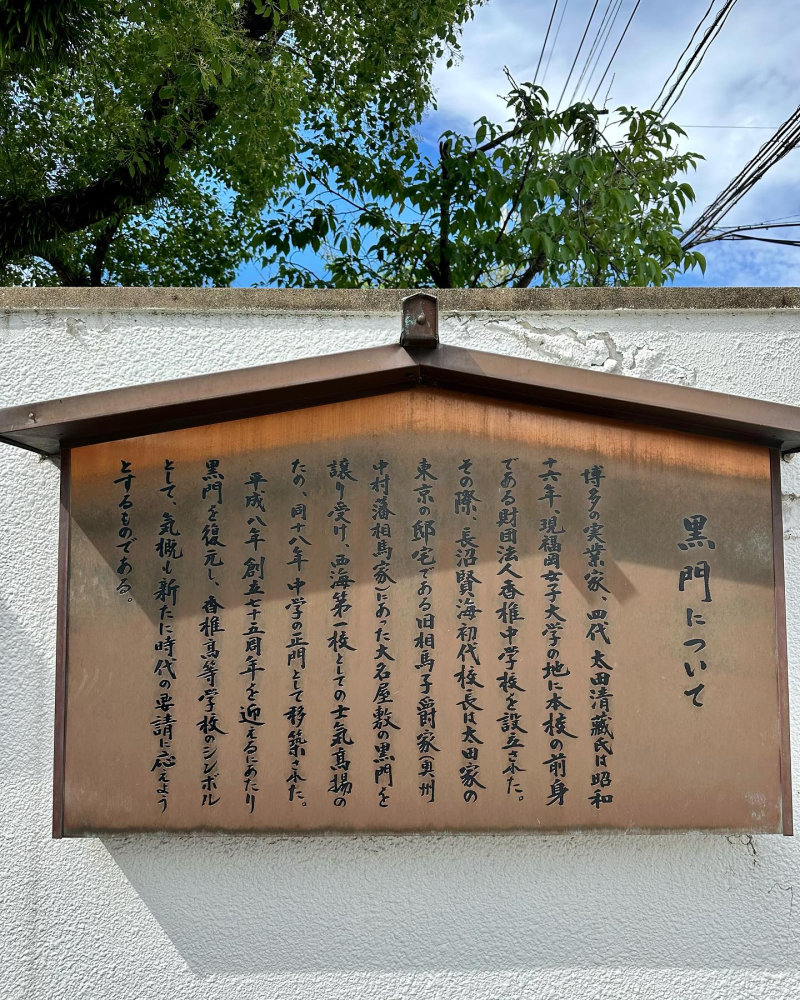 黒門について
博多の実業家、四代 太田清蔵氏は昭和
十六年、現福岡女子大学の地に本校の前身
である財団法人香椎中学校を設立された。
その際、長沼賢海初代校長は太田家の
東京の邸宅である旧相馬子爵家(奥州
中村藩相馬家)にあった大名屋敷の黒門を
譲り受け、西海第一校としての士気高揚の
ため、同十八年 中学の正門として移築された。
平成八年 創立七十五周年を迎えるにあたり
黒門を復元し、香椎高等学校のシンボル
として、気概も新たに時代の要請に応えよう
とするものである。